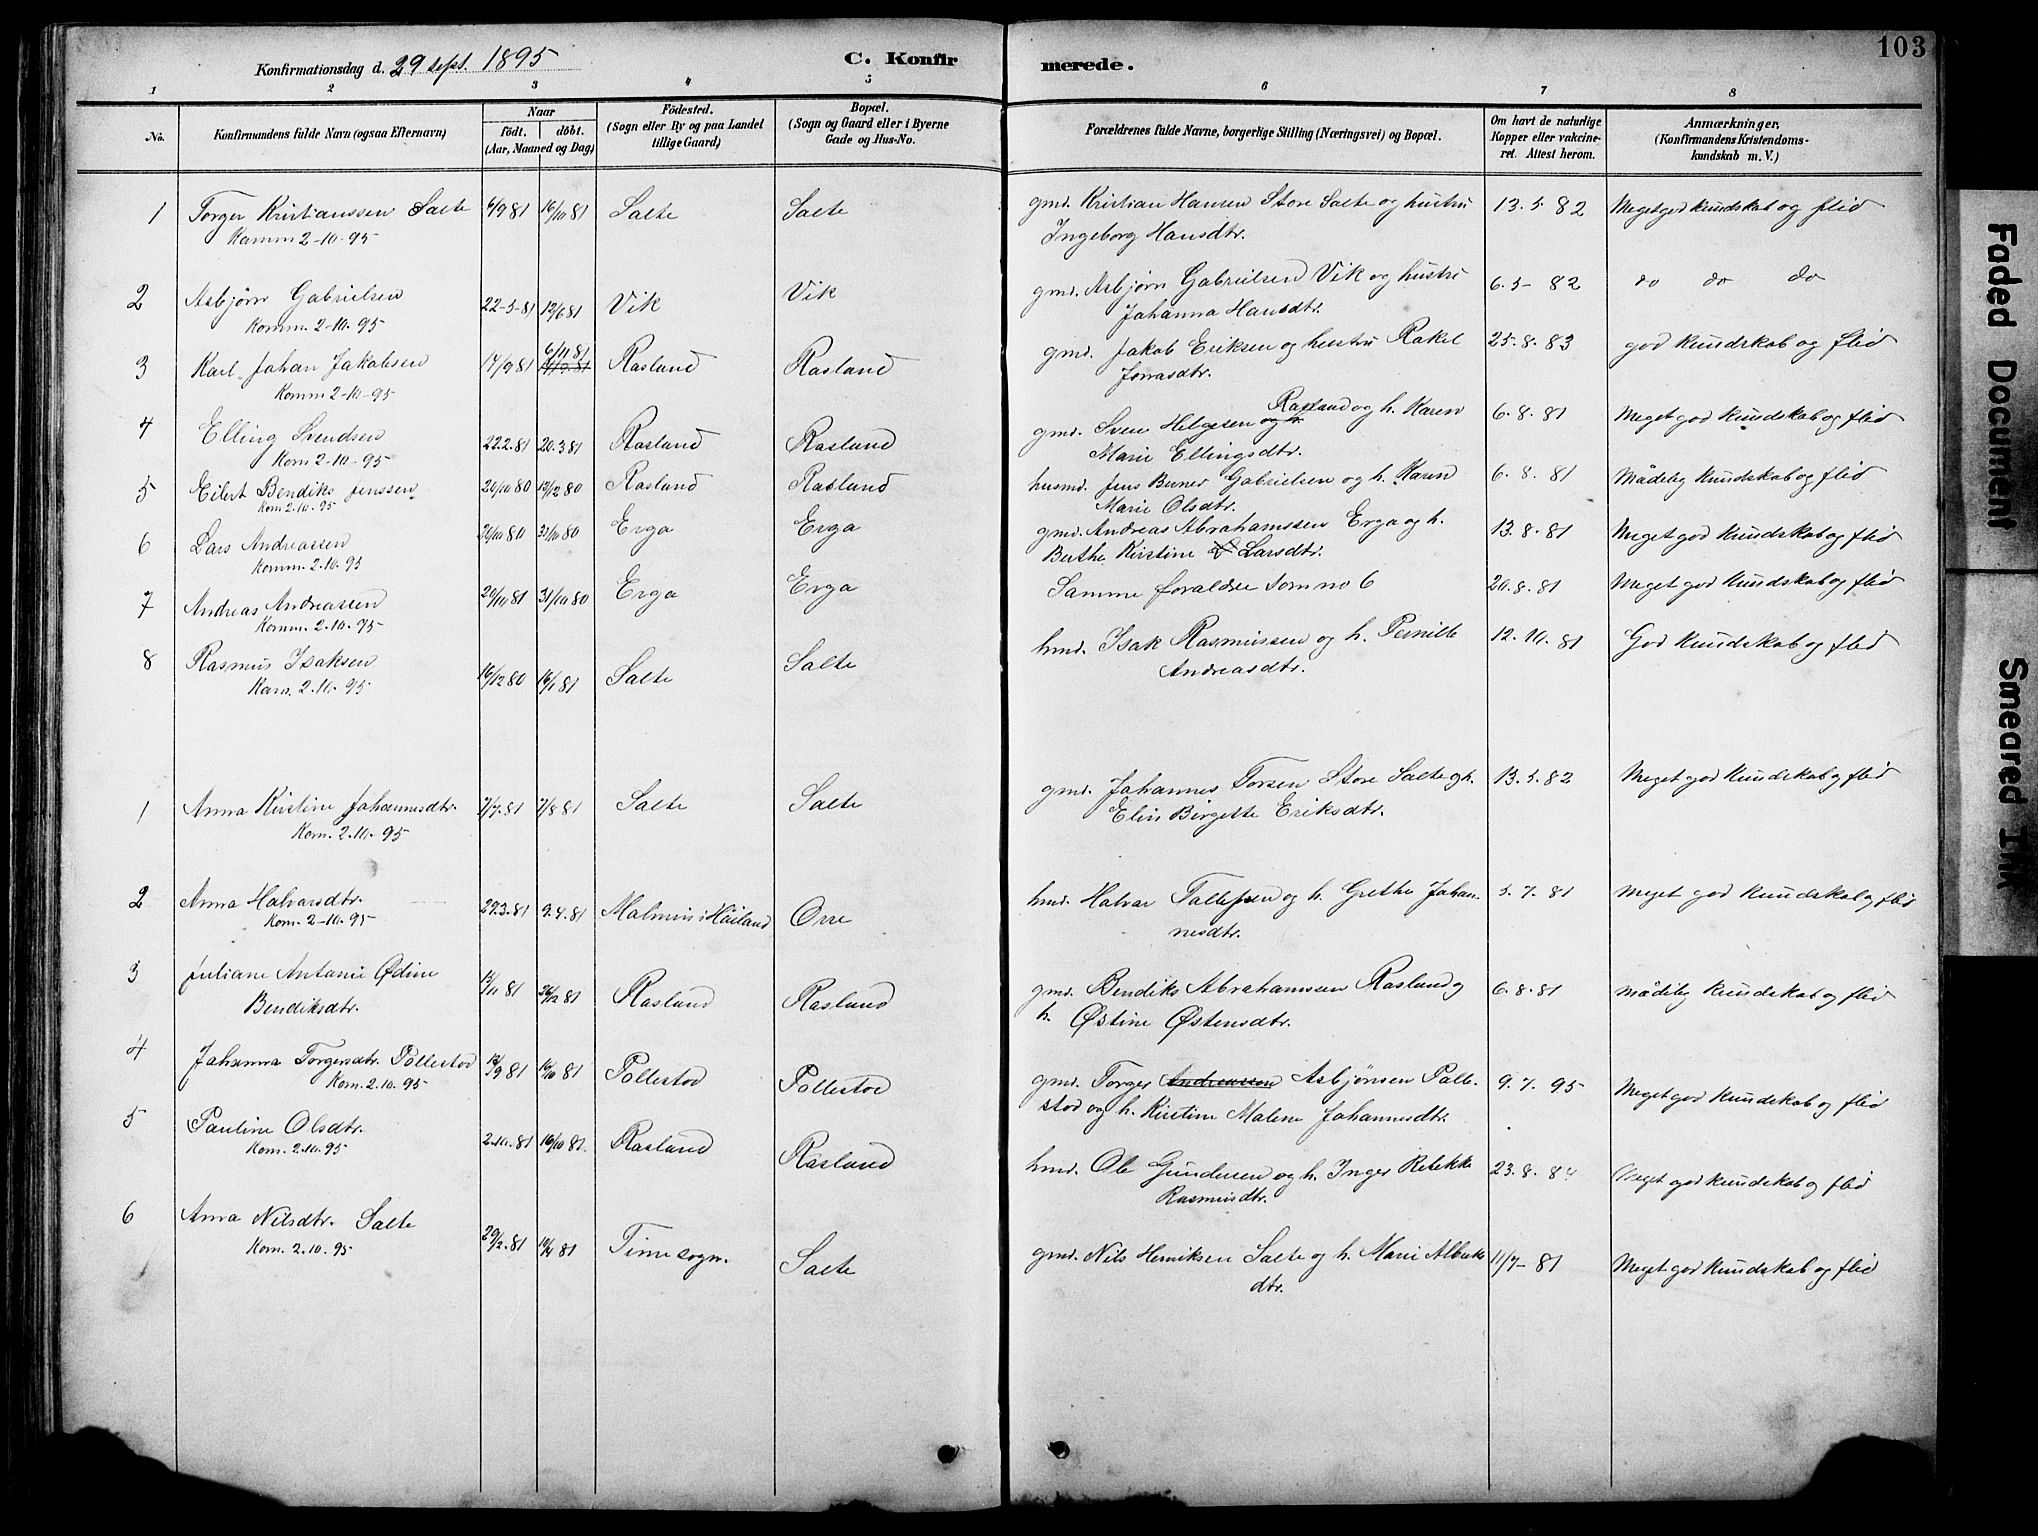 103
Konfirmationsdag d. 29 sept. 1895 C. Konfirmerede.
1 2 3 4 5 6 7 8
No. Konfirmandens fulde Navn (ogsaa Efternavn) Naar födt. döbt. (Aar, Maaned og Dag) Födested. (Sogn eller By og paa Landet tillige Gaard) Bopæl. (Sogn og Gaard eller i Byerne Gade og Hus-No. Forældrenes fulde Navne, borgerlige Stilling (Næringsvei) og Bopæl. Om havt de naturlige Kopper eller vakcineret. Attest herom. Anmærkninger. (Konfirmandens Kristendomskundskab m. V.)
1 Torger Kristianssen Salte 6/9 81 16/10 81 Salte Salte gmd. Kristian Hansen Store Salte og hustru 13.5.82 Meget god kundskab og flid
Komm 2-10-95 Ingeborg Hansdtr.
2 Asbjørn Gabrielsen 22-5-81 12/6 81 Vik Vik gmd. Asbjørn Gabrielsen Vik og hustru 6.5-82 do do do
Komm. 2-10-95 Johanna Hansdtr.
3 Karl Johan Jakobsen 17/9 81 6/11 81 Rasland Rasland gmd. Jakob Eriksen og hustru Rakel 25.8.83 god kundskab og flid
Komm 2-10-95 Jonasdtr.
4 Elling Svendsen 22.2.81 20.3 81 Rasland Rasland gmd. Sven Helgesen og h. Rasland og h. Karen 6.8.81 Meget god kundskab og flid
Kom 2-10-95 Marie Ellingsdtr.
5 Eilert Bendiks Jenssen 20/10 80 12/12 80 Rasland Rasland husmd. Jens Berner Gabrielsen og h. Karen 6.8.81 Mådelig kundskab og flid
Kom 2.10.95 Marie Olsdtr.
6 Lars Andreassen 20/10 80 31/10 80 Erga Erga gmd. Andreas Abrahamssen Erga og h. 13.8.81 Meget god kundskab og flid
Komm. 2.10.95 Berthe Kirstine Larsdtr.
7 Andreas Andreassen 20/10 81 31/10 80 Erga Erga Samme forældre som no 6 20.8.81 Meget god kundskab og flid
Komm. 2.10.95
8 Rasmus Isaksen 16/12 80 16/1 81 Salte Salte hmd. Isak Rasmussen og h. Pernille 12.10.81 God kundskab og flid
Kom. 2.10.95 Andreasdtr.
1 Anna Kirstine Johannesdtr. 7/7.81 7/8 81 Salte Salte gmd. Johannes Torsen Store Salte og h. 13.5.82 Meget god kundskab og flid
Kom. 2.10.95 Elin Birgitte Eriksdtr.
2 Anna Halvarsdtr. 27.3.81 9.4.81 Malmin i Høiland Orre hmd. Halvar Tollefsen og h. Grethe Johan- 5.7.81 Meget god kundskab og flid
Kom. 2-10-95 nesdtr.
3 Juliane Antonie Ødine 12/11 81 26/12 81 Rasland Rasland gmd. Bendiks Abrahamssen Rasland og 6.8.81 Mådelig kundskab og flid
Bendiksdtr. h. Østine Østensdtr.
4 Johanna Torgersdtr. Pollestod 12/9 81 16/10 81 Pollestod Pollestod gmd. Torger Andreassen Asbjørnsen Polle- 9.7.95 Meget god kundskab og flid
Kom. 2.10.95 stod og h. Kirstine Malene Johannesdtr.
5 Pauline Olsdtr. 2.10.81 16/10 81. Rasland Rasland hmd. Ole Gundersen og h. Inger Rebekke 23.8.84 Meget god kundskab og flid
Kom. 2.10.95 Rasmusdtr.
6 Anna Nilsdtr. Salte 29/2.81 10/4 81 Time sogn. Salte gmd. Nils Henriksen Salte og h. Marie Albreks 11/7-81 Meget god kundskab og flid
Kom. 2.10.95 dtr.
Faded Document
Smeared Ink